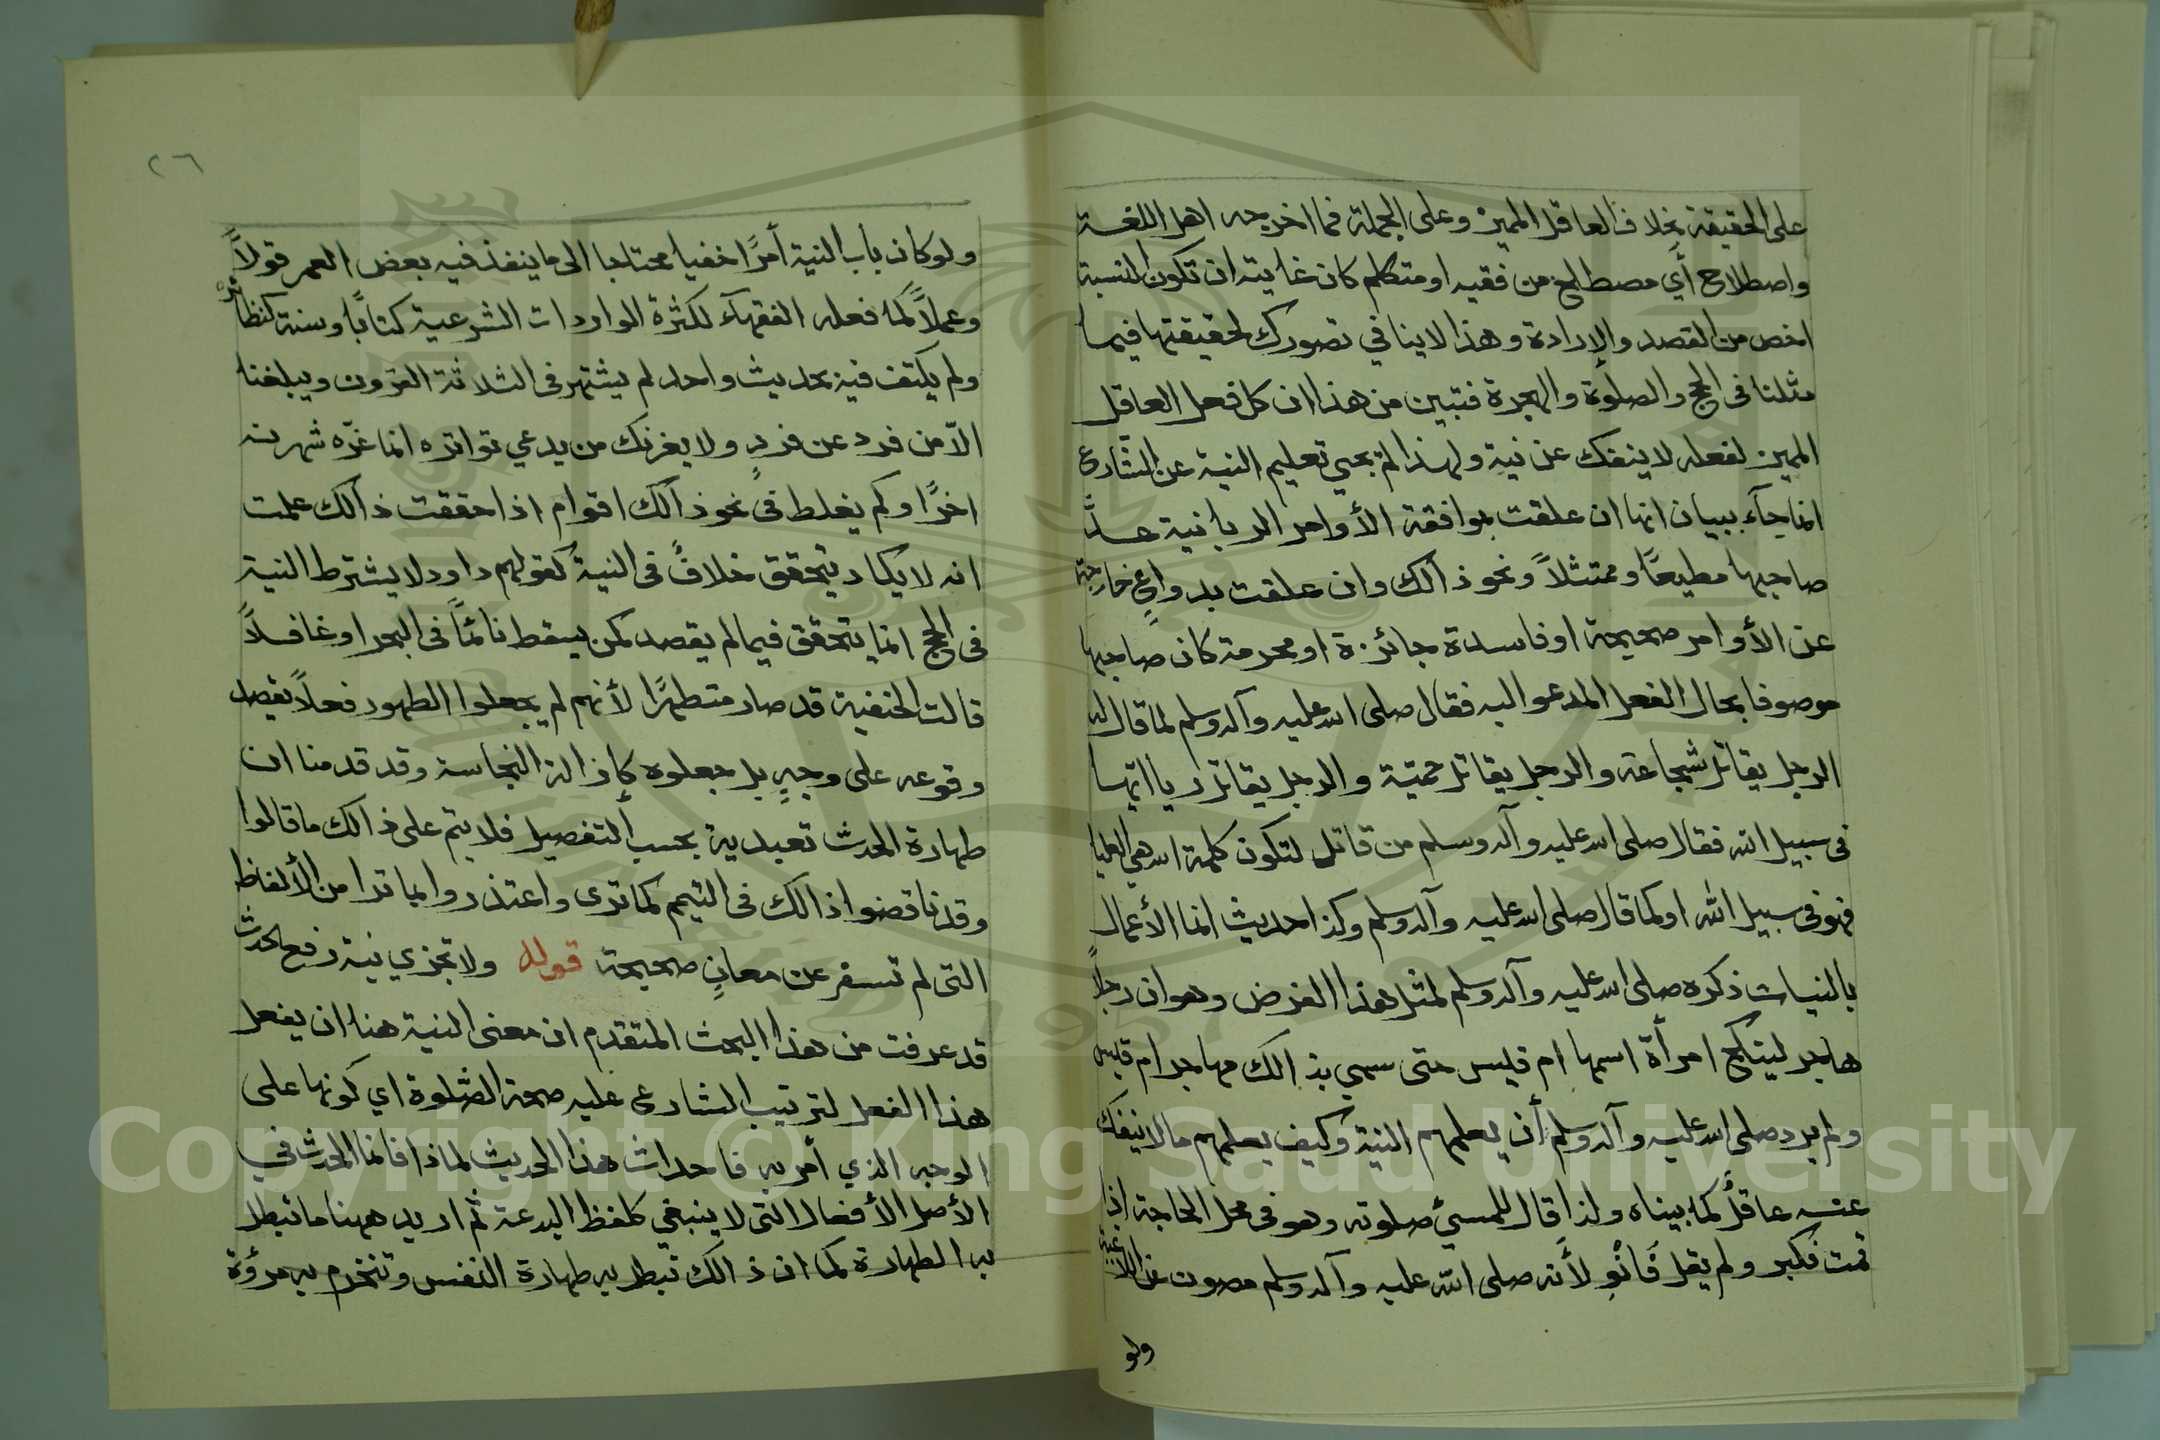 على الحقيقة بخلاف العاقل المميز وعلى الجملة فما اخرجه اهل اللغة
واصطلاح أي مصطلح من فقيه او متكلم كان غايته ان تكون النسبة
اخص من القصد والإرادة وهذا لا ينافي تصورك لحقيقتها فيما
مثلنا فى الحج والصلوة والهجرة فتبين من هذا ان كل فعل العاقل
المميز لفعله لا ينفك عن نية ولهذا لم يجي تعليم النية عن الشارع
انما جآء ببيان انها ان علقت بموافقة الأوامر الربانية عدّ
صاحبها مطيعًا وممتثلاً ونحو ذالك وان علقت بدواعٍ خارجة
عن الأوامر صحيحة او فاسدة جائزة او محرمة كان صاحبها
موصوفا بحال الفعل المدعو اليه فقال صلى الله عليه وآله وسلم لما قال له
الرجل يقاتل شجاعة والرجل يقاتل حميّة والرجل يقاتل ريا ايها
فى سبيل الله فقال صلى الله عليه وآله وسلم من قاتل لتكون كلمة الله هي العليا
فهو فى سبيل الله او كما قال صلى الله عليه وآله وسلم وكذا حديث انما الأعمال
بالنيات ذكره صلى الله عليه وآله وسلم لمثل هذا الغرض وهو ان رجلاً
هاجر لينكح امرأة اسمها ام قيس حتى سمي بذالك مهاجر ام قيس
ولم يرد صلى الله عليه وآله وسلم أن يعلمهم النية وكيف يعلمهم ما لا ينفك
عنه عاقلٌ كما بيناه ولذا قال للمسيئ صلوته وهو فى محل الحاجة اذا
قمت فكبر ولم يقل فَانْوِ لأنه صلى الله عليه وآله وسلم مصون عن
ولو
٢٦
ولو كان باب النية أمرًا خفيا محتاجا الى ما ينفذ فيه بعض العمر قولاً
وعملاً كما فعله الفقهآء لكثرة الواردات الشرعية كتابًا وسنة كنظائره
ولم يكتف فيه بحديث واحد لم يشتهر فى الثلاثة القرون ويبلغنا
الاّ من فرد عن فردٍ ولا يغرنك من يدعي تواتره انما غرّه شهرته
اخرًا وكم يغلط فى نحو ذالك اقوام اذا حققت ذالك علمت
انه لا يكاد يتحقق خلافٌ فى النية كقولهم داود لا يشترط النية
فى الحج انما يتحقق فيما لم يقصد كمن يسقط نائماً فى البحر او غافلاً
قالت الحنفية قد صار متطهرًا لأنهم لم يجعلوا الطهور فعلاً يقصد
وقوعه على وجهٍ بل جعلوه كإزالة النجاسة وقد قدمنا ان
طهارة الحدث تعبدية بحسب التفصيل فلا يتم على ذالك ما قالوا
وقد ناقضوا ذالك فى التيمم كما ترى واعتذروا بما ترا من الألفاظ
التى لم تسفر عن معانٍ صحيحة قوله ولا تجزي نية رفع الحدث
قد عرفت من هذا البحث المتقدم ان معنى النية هنا ان يفعل
هذا الفعل لترتيب الشارع عليه صحة الصلوة اي كونها على
الوجه الذي أمر به فاحداث هذا الحديث لماذا فانما الحدث في
الأصل الأفعال التى لا ينبغي كلفظ البدعة ثم اريد ههنا ما تبطل
به الطهارة كما ان ذالك تبطل به طهارة النفس وتنخرم به مروؤة
Copyright © King Saud University